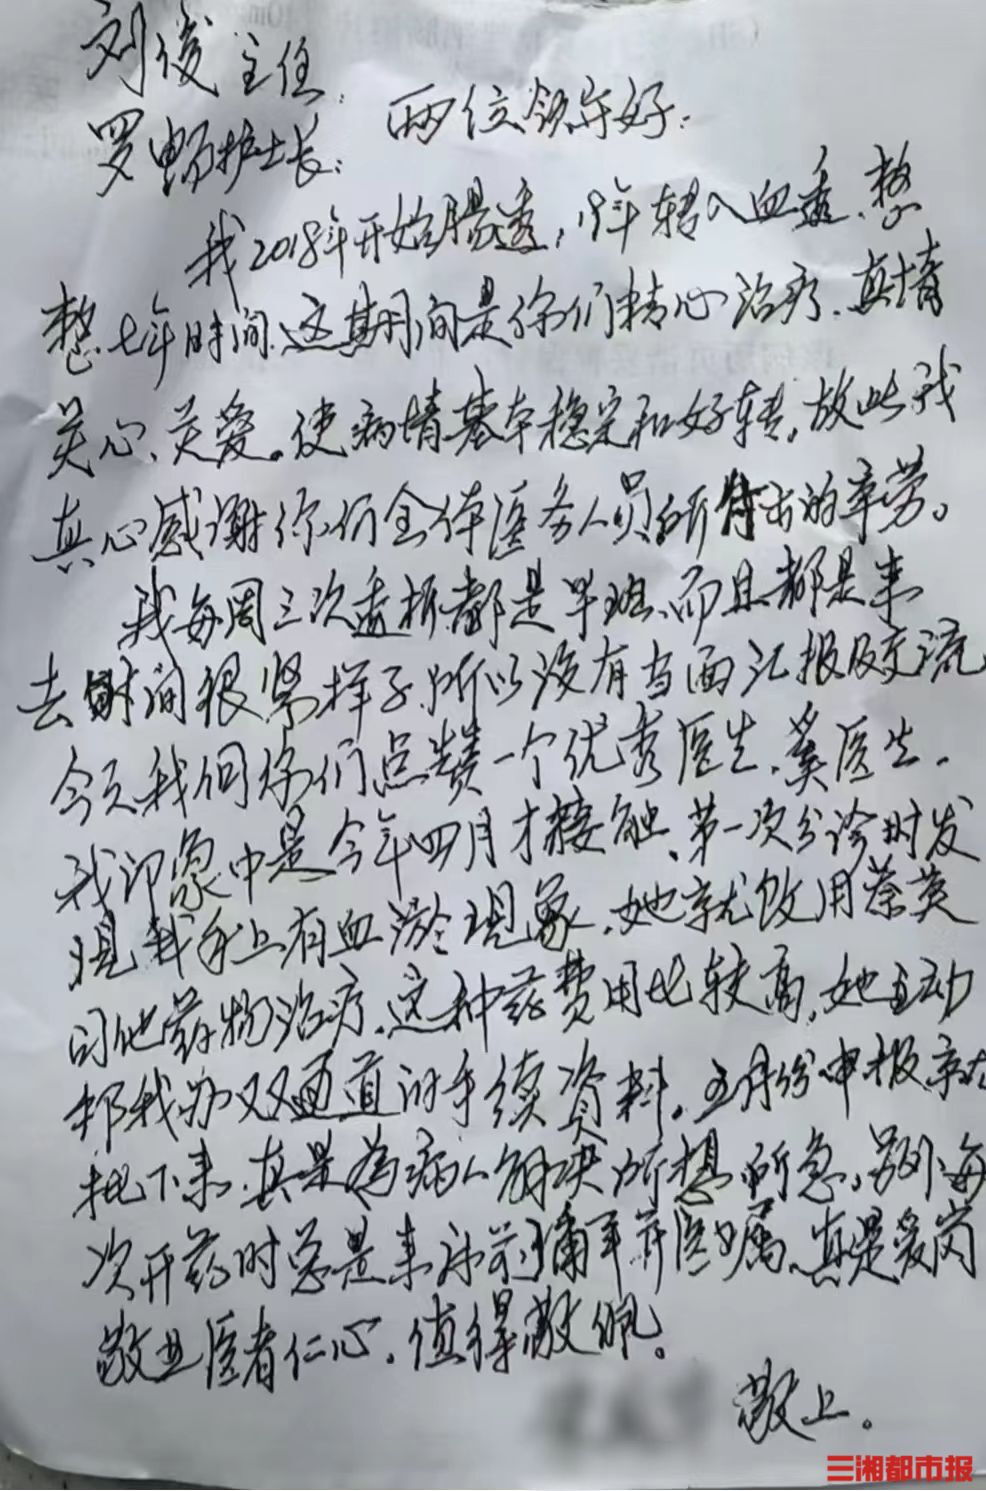 刘俊主任:
罗畅护士长: 两位领导好:
我2018年开始腹透,19年转入血透、整
整七年时间.这期间是你们精心治疗.真情
关心、关爱。使病情基本稳定和好转。故此我
真心感谢你们全体医务人员所付出的辛劳。
我每周三次透析都是早班、而且都是来
去时间很紧样子.所以没有当面汇报及交流
今天我们你们点赞一个优秀医生.奚医生.
我印象中是今年四月才接触、第一次分诊时发
现我手上有血淤现象.她就改用蔡英
司他药物治疗.这种药费用比较高,她主动
帮我办双通道的手续资料。五月份申报就
批下来.真是为病人解决所想所急。另外每
次开药时总是来床前 医嘱、真是爱岗
敬业医者仁心.值得敬佩。
敬上。
三湘都市报